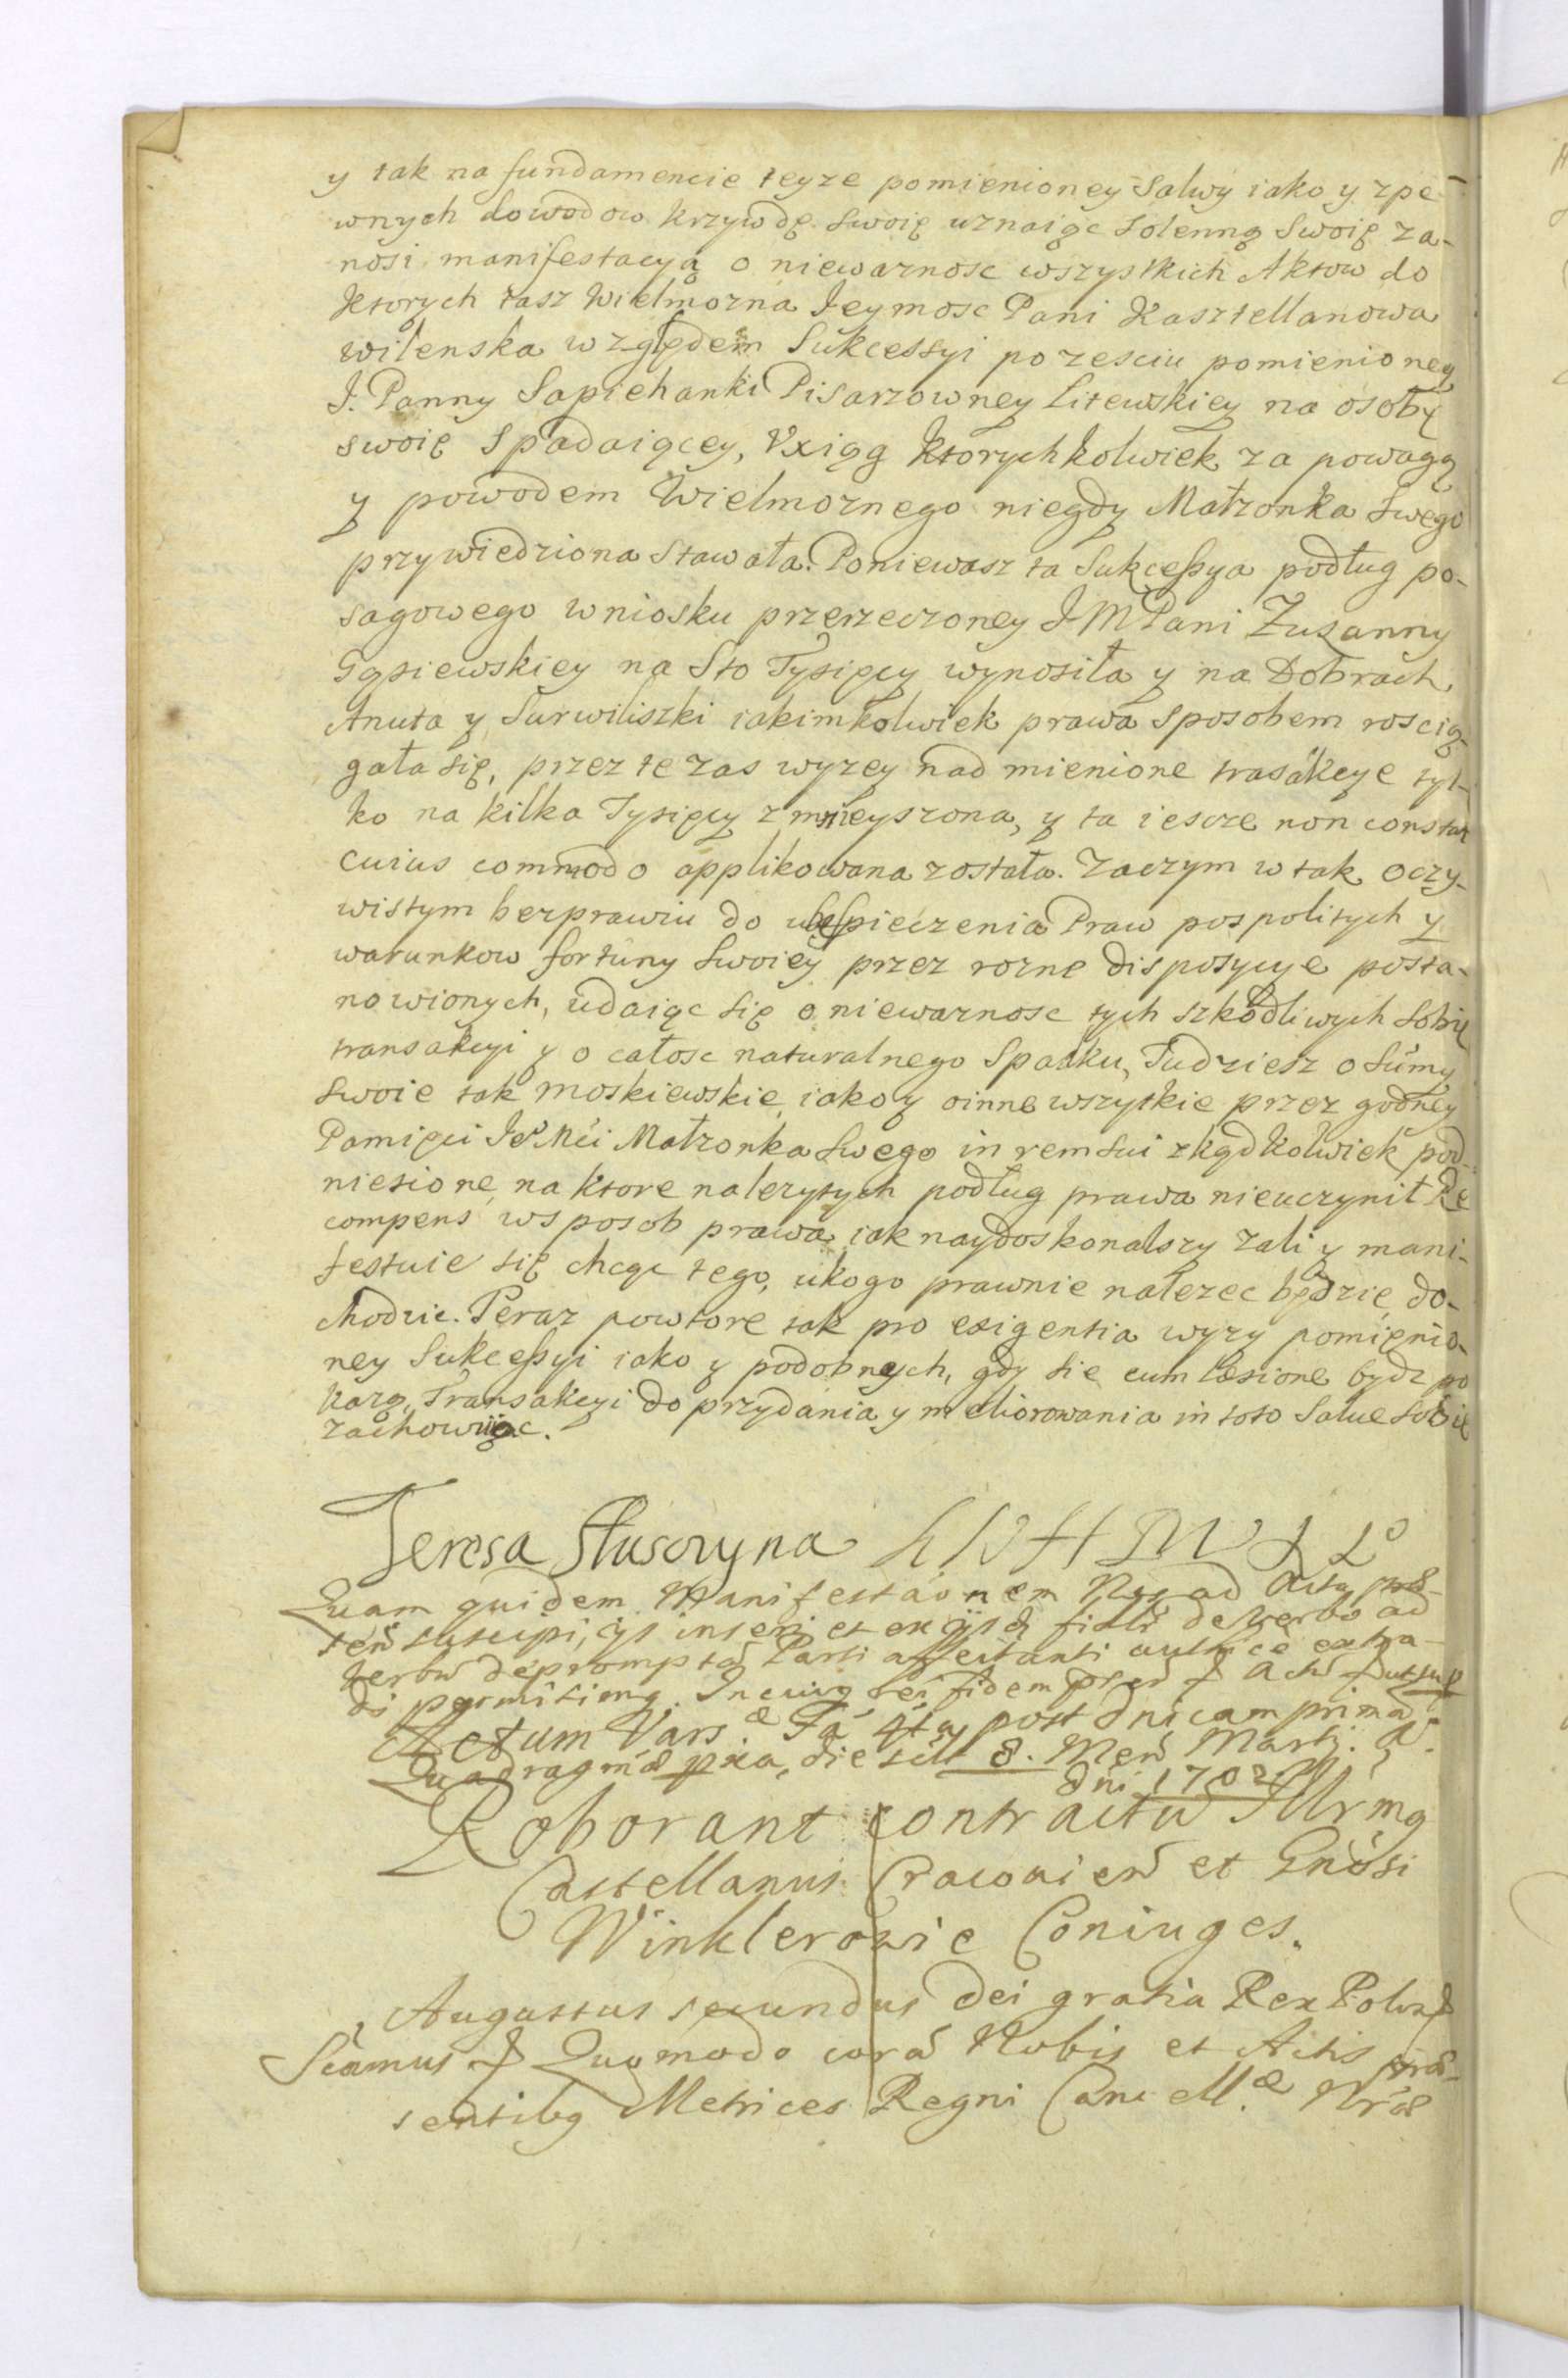 y tak na fundamencie teyze pomienioney Salwy iako y zpe-
wnych dowodow krzywdę swoię uznaiąc solenną Swoię za-
nosi manifestacyą o niewaznosc wszystkich Aktow do
ktorych tasz Wielmozna Jeymosc Pani Kasztellanowa
wilenska względem Sukcessyi po zesciu pomienioney
J. Panny Sapiehanki Pisarzowney Litewskiey na osobę
swoię Spadaiącey, Vxiąg ktorychkolwiek za powagą
y powodem Wielmoznego niegdy Małzonka Swego
przywiedziona Stawała. Poniewasz ta Sukcessya podług po-
sagowego wniosku przerzeczoney J M Pani Zuzanny
Gąsiewskiey na Sto Tysięcy wynosiła y na Dobrach,
Anuta y Surwiliszki iakimkolwiek prawa sposobem roscią-
gała się, przez te zas wyzey nadmienione trasakcye tyl-
ko na kilka Tysięcy zmnieyszona, y ta iescze non constat
cuius commodo applikowana została. Zaczym w tak oczy-
wistym bezprawiu do ubespieczenia Praw pospolitych y
warunkow fortuny Swoiey przez rozne dispozycye posta-
nowionych, udaiąc się o niewaznosc tych szkodliwych sobie
transakcyi y o całosc naturalnego Spadku, Tudziesz o Sumy
swoie tak moskiewskie, iako y oinne wszytkie przez godney
Pamięci Je Mci Małzonka Swego in rem sui zkądkolwiek pod-
niesione, na ktore nalezytych podług prawa nieuczynił Re
compens wsposob prawa iak naydoskonalszy zali y mani-
festuie się chcąc tego, ukogo prawnie nalezec będzie, do-
chodzic. Teraz powtore tak pro exigentia wyzy pomienio-
ney Sukcessyi iako y podobnych, gdy sie cum læsione bydz po
kazą, Transakcyi do przydania y meliorowania in toto Salue sobie
zachowuiąc.
Teresa Słusczyna
Quam quidem Manifestaonem Nos ad Acta præ-
sen suscipi, ijs inseri et ex ijsdẽ fidlr de verbo ad
verbũ depromptã Parti affectanti authce extra-
di permisimg. In cuig rei fidem
Actum Vars. æ Fa 4ta post dnicam prima
Quadragmæ pxa, die scilt 8. Men Martj. A.
dni 1702
Roborant contractũ Illrmg
Castellanus Cracovien et Gnosi
Winklerowie Coniuges.
Augustus secundus Dei gratia Rex Polon
Scamus Quomodo corã Nobis et Actis præ-
sentibg Metrices Regni Cancell. æ Nræ